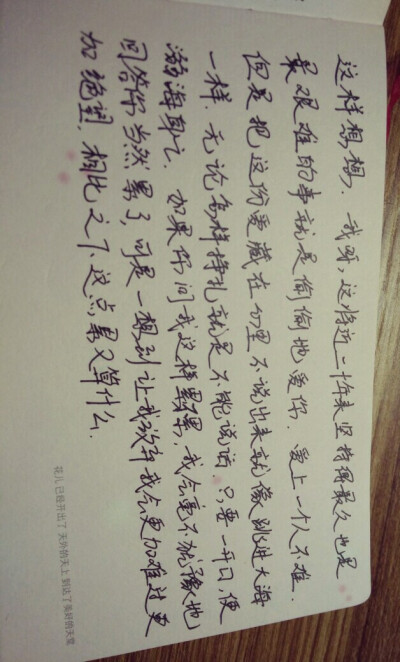 这样想想. 我呀,这将近二十年来坚持得最久也是
最艰难的事就是偷偷地爱你. 爱上一个人不难.
但是把这份爱藏在心里不说出来就像跳进大海
一样. 无论怎样挣扎就是不能说话. 只要一开口,便
溺海身亡. 如果你问我这样累不累, 我会毫不犹豫地
回答你当然累了, 可是一想到让我放弃我会更加难过更
加绝望. 相比之下这点累又算什么.
花儿 已经开出了 天外的天上 到达了美好的天堂